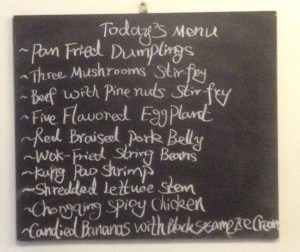 Today's Menu
~Pan Fried Dumplings
~Three Mushrooms Stir fry
~Beef with Pine nuts Stir fry
~Five Flavored EggPlant
~Red Braised Pork Belly
~Wok-Fried String Beans
~Kung Pao Shrimp
~Shredded Lettuce Stem
~Chongqing Spicy Chicken
~Candied Bananas with Black Sesame Ice Cream